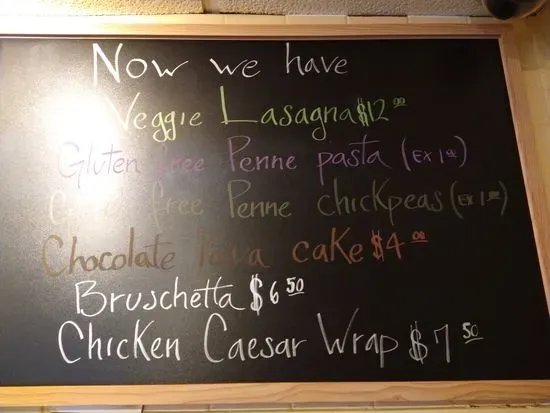 Now we have
Veggie Lasagna $12.00
Gluten free Penne pasta (Ex 1.00)
free Penne chickpeas (Ex 1.00)
Chocolate lava cake $4.00
Bruschetta $6.50
Chicken Caesar Wrap $7.50